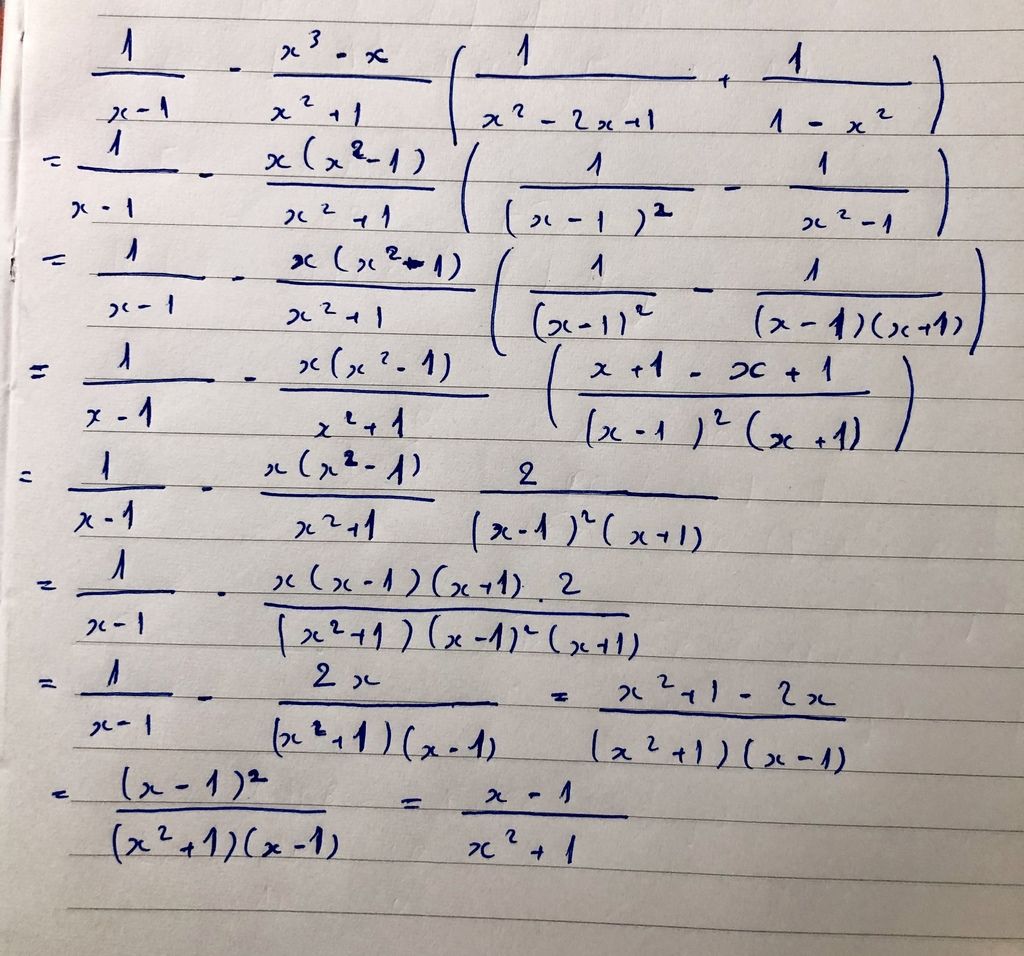 1/(x-1) - (x³ - x)/(x² + 1) (1/(x² - 2x + 1) + 1/(1 - x²))
= 1/(x - 1) - x(x² - 1)/(x² + 1) (1/(x - 1)² - 1/(x² - 1))
= 1/(x - 1) - x(x² - 1)/(x² + 1) (1/(x - 1)² - 1/((x - 1)(x + 1)))
= 1/(x - 1) - x(x² - 1)/(x² + 1) ((x + 1 - x + 1)/((x - 1)²(x + 1)))
= 1/(x - 1) - x(x² - 1)/(x² + 1) 2/((x - 1)²(x + 1))
= 1/(x - 1) - (x(x - 1)(x + 1) . 2)/((x² + 1)(x - 1)²(x + 1))
= 1/(x - 1) - 2x/((x² + 1)(x - 1)) = (x² + 1 - 2x)/((x² + 1)(x - 1))
= (x - 1)²/((x² + 1)(x - 1)) = (x - 1)/(x² + 1)